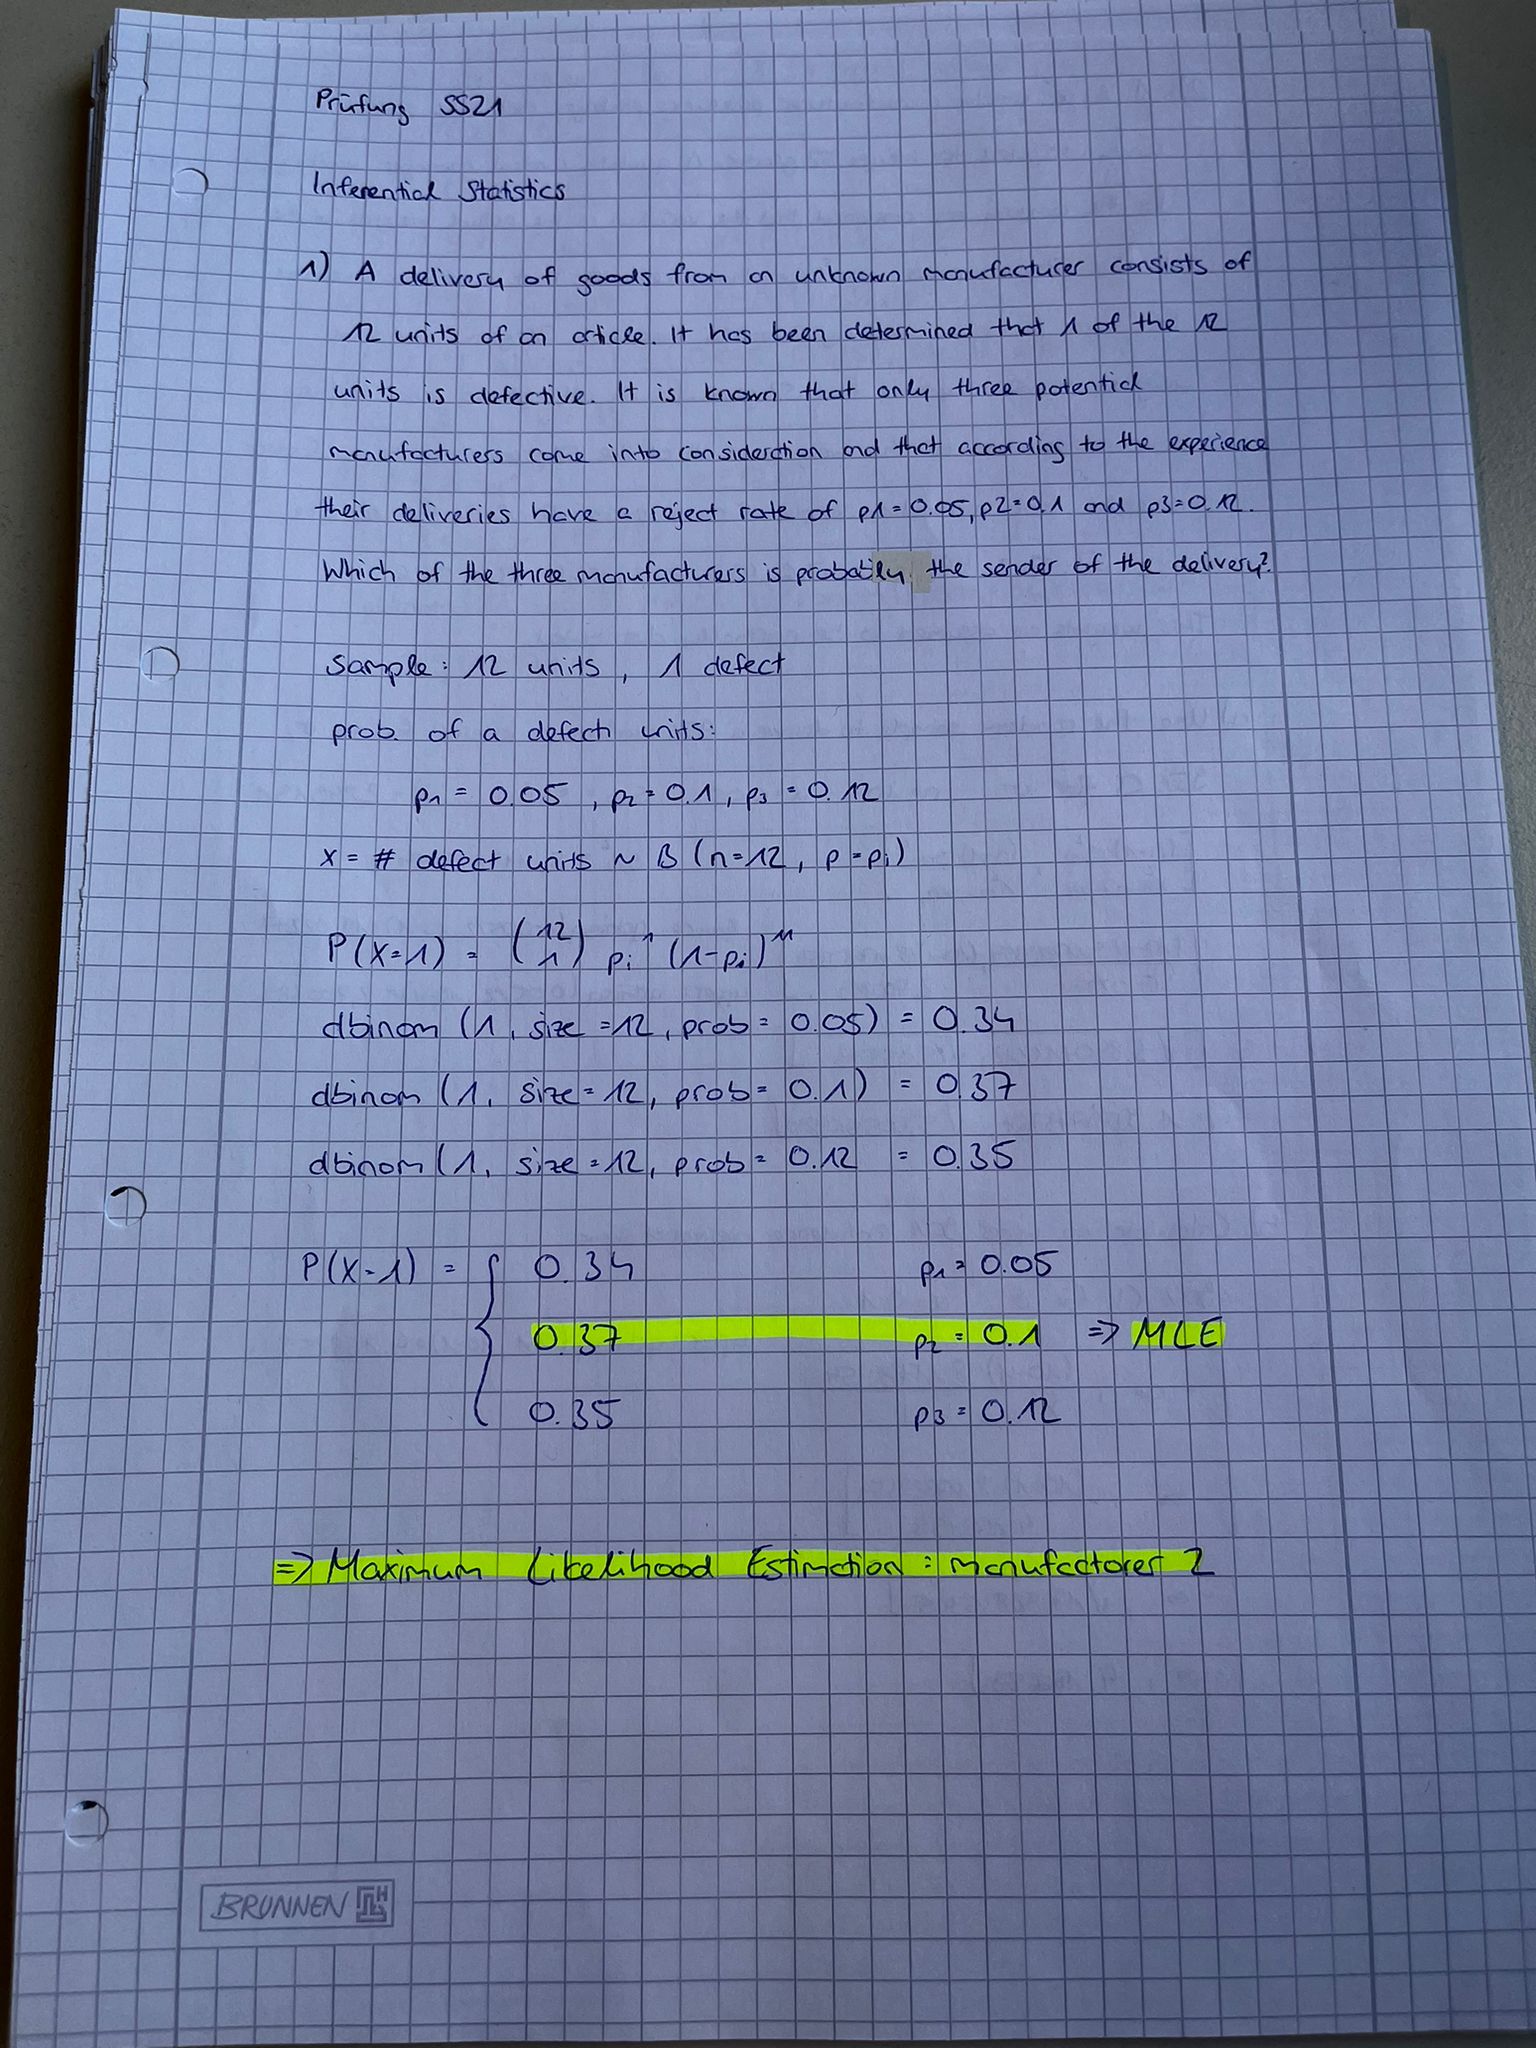 Prüfung SS21
Inferential Statistics
1) A delivery of goods from an unknown manufacturer consists of
12 units of an article. It has been determined that 1 of the 12
units is defective. It is known that only three potential
manufacturers come into consideration and that according to the experience
their deliveries have a reject rate of p1=0.05, p2=0.1 and p3=0.12.
Which of the three manufacturers is probably the sender of the delivery?
Sample: 12 units, 1 defect
prob. of a defect units:
p₁ = 0.05, p₂ = 0.1, p₃ = 0.12
X = # defect units ~ B (n=12, p=pᵢ)
P(X=1) = (12 1) pᵢ¹ (1-pᵢ)¹¹
dbinom (1, size=12, prob= 0.05) = 0.34
dbinom (1, size=12, prob= 0.1) = 0.37
dbinom (1, size=12, prob= 0.12 = 0.35
P(X=1) = { 0.34 p₁ = 0.05
0.37 p₂ = 0.1 => MLE
0.35 p3 = 0.12
=> Maximum Likelihood Estimation: manufactorer 2
BRUNNEN